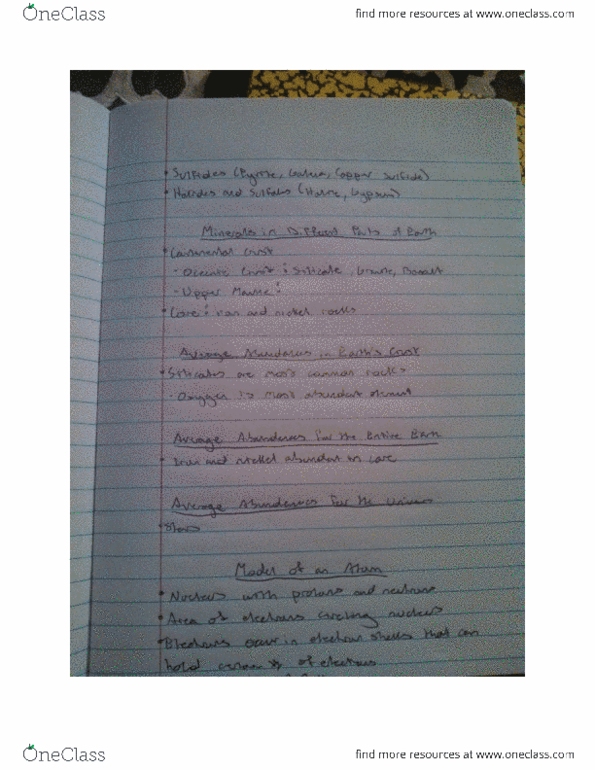 OneClass
find more resources at www.oneclass.com
• Sulfides (Pyrite, Galena, Copper Sulfide)
• Halides and Sulfates (Halite, Gypsum)
Minerals in Different Parts of Earth
• Continental Crust
- Oceanic Crust: Silicate, Granite, Basalt
- Upper Mantle:
• Core: iron and nickel rocks
Average Abundances in Earth's Crust
• Silicates are most common rocks
- Oxygen is most abundant element
Average Abundances for the Entire Earth
• Iron and nickel abundant in core
Average Abundances for the Universe
• Stars
Model of an Atom
• Nucleus with protons and neutrons
• Area of electrons circling nucleus
• Electrons occur in electron shells that can
hold certain # of electrons
OneClass
find more resources at www.oneclass.com